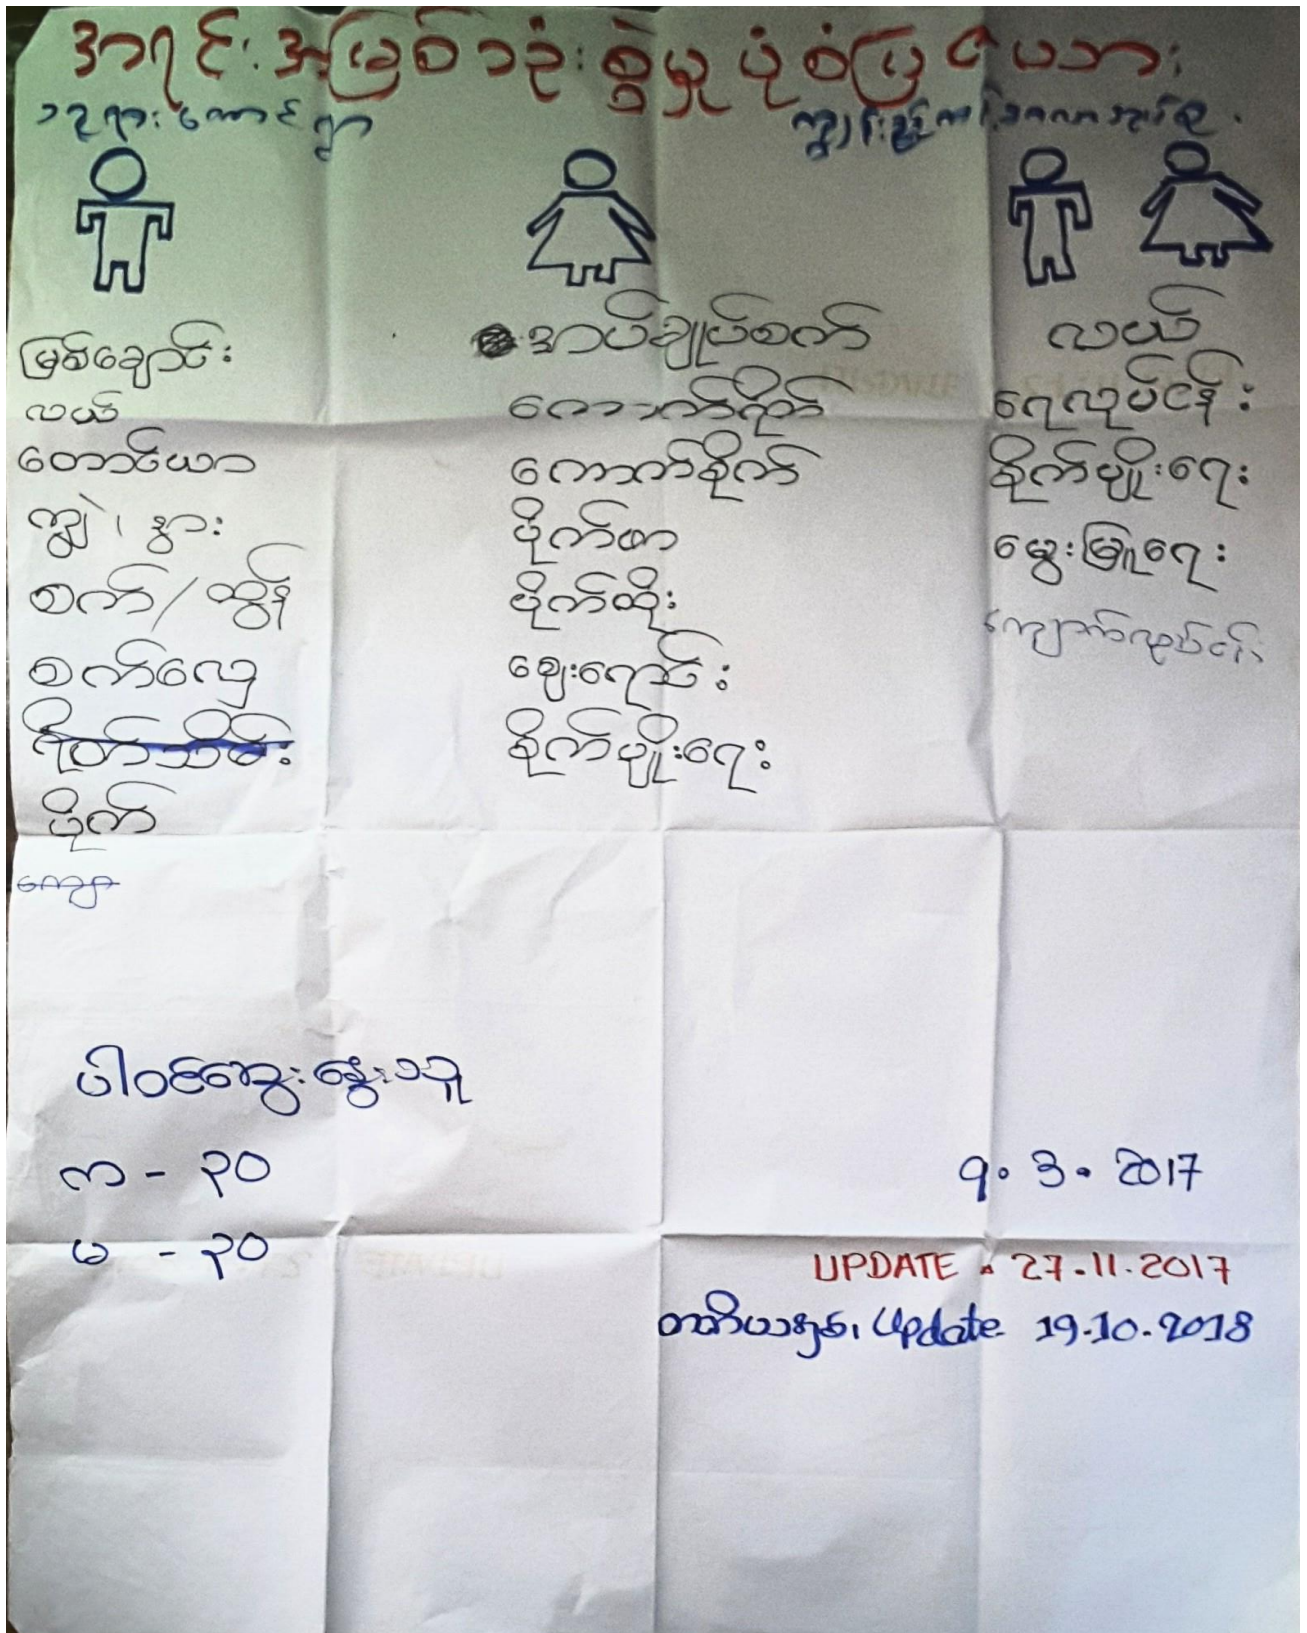 အရင်းအမြစ်သုံးစွဲမှုပုံစံပြဇယား
မြစ်ချောင်း
လယ်
တောင်ယာ
ကျွဲ၊ နွား
စက်/ထွန်
စက်လှေ
ရိတ်သိမ်း
ပိုက်
ကျော
အပ်ချုပ်စက်
ကောက်ရိတ်
ကောက်စိုက်
ပိုက်ဖာ
ပိုက်ထိုး
ဈေးရောင်း
စိုက်ပျိုးရေး
လယ်
ရေလုပ်ငန်း
စိုက်ပျိုးရေး
မွေးမြူရေး
ကျောက်လုပ်ငန်း
ပါဝင်ဆွေးနွေးသူ
က - ၃၀
မ - ၃၀
9.3.2017
UPDATE . 27.11.2017
တတိယနှစ်၊ Update 19.10.2018